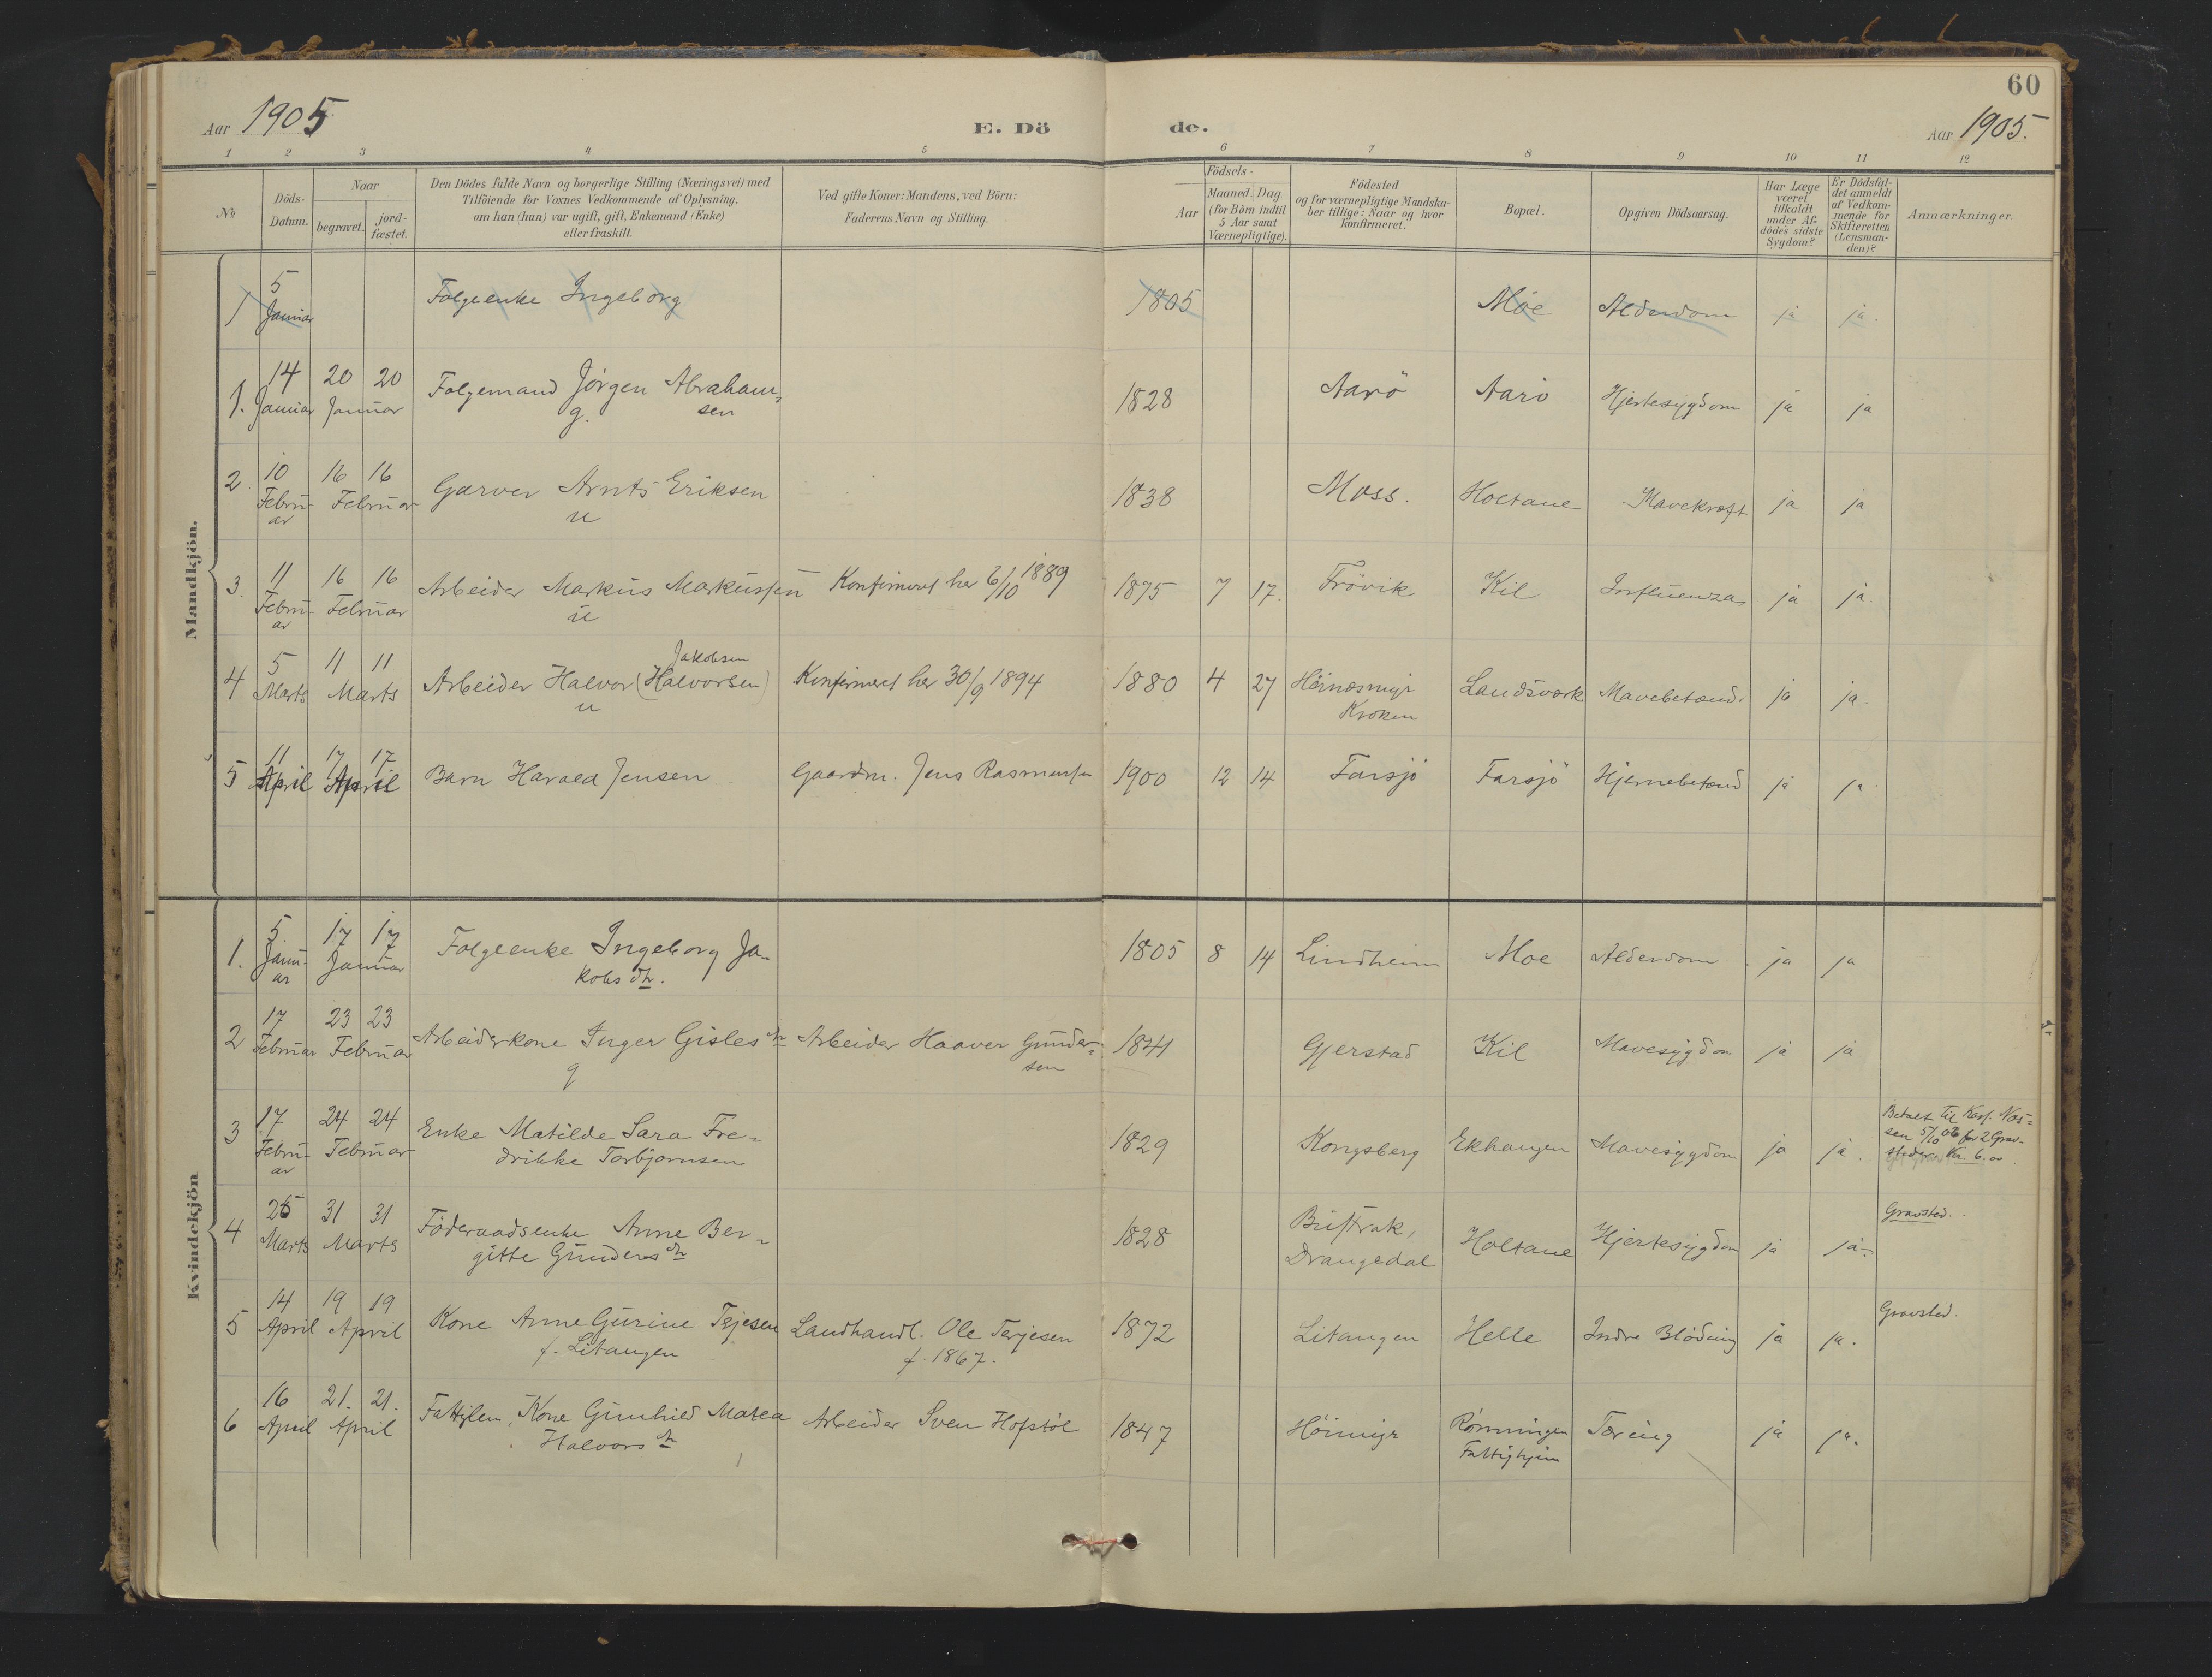 60
Aar 1905
E. Dö de.
Aar 1905.
1 2 3 4 5 6 7 8 9 10 11 12
No
Döds-
Datum.
Naar
begravet.
jord-
fæstet.
Den Dödes fulde Navn og borgerlige Stilling (Næringsvei) med
Tilföiende for Voxnes Vedkommende af Oplysning.
om han (hun) var ugift, gift, Enkemand (Enke)
eller fraskilt.
Ved gifte Koner: Mandens, ved Börn:
Faderens Navn og Stilling.
Födsels-
Aar
Maaned. Dag.
(for Börn indtil
5 Aar samt
Værnepligtige).
Födested
og for værnepligtige Mandska-
ber tillige: Naar og hvor
konfirmeret.
Bopæl.
Opgiven Dödsaarsag.
Har Læge
været
tilkaldt
under Af-
dödes sidste
Sygdom?
Er Dödsfal-
det anmeldt
af Vedkom-
mende for
Skifteretten
(Lensman-
den)?
Anmærkninger.
Mandkjön.
1 5 Januar Folgeenke Ingeborg 1805 Moe Alderdom ja ja.
1. 14 Januar 20 20 Januar Folgemand Jörgen Abraham-
g. sen 1828 Aarö Aarö Hjertesygdom ja ja
2. 10 Febru- 16 16 Februar Garver Arnts Eriksen 1838 Moss. Holtane Mavekræft ja ja
ar u
3. 11 Febru- 16 16 Februar Arbeider Markus Markussen Konfirmeret her 6/10 1889 1875 7 17. Frövik Kil Influenza ja ja.
ar u
Jakobsen
4 5 Marts 11 11 Marts Arbeider Halvor (Halvorsen) Konfirmeret her 30/9 1894 1880 4 27 Höinæsmyr Landsværk Mavebetænd. ja ja.
u Kroken
5 11 April 17 17 April Barn Harald Jensen Gaardm. Jens Rasmussen 1900 12 14 Farsjö Farsjö Hjernebetænd ja ja.
Kvindekjön
1. 5 Janu- 17 17 Januar Folgeenke Ingeborg Ja- 1805 8 14 Lindheim Moe Alderdom ja ja
ar kobsdtr.
2 17 Februar 23 23 Februar Arbeiderkone Inger Gislesdtr Arbeider Haaver Gunder- 1841 Gjerstad Kil Mavesygdom ja ja
g sen
3 17 Febru- 24 24 Februar Enke Matilde Sara Fre- 1829 Kongsberg Ekhaugen Mavesygdom ja ja. Betalt til Kass. Næs-
ar drikke Torbjornsen sen 5/10 06 for 2 Grav-
steder Kr. 6.00
4 26 Marts 31 31 Marts Föderaadsenke Anne Ber- 1828 Drangedal Holtane Hjertesygdom ja ja. Gravsted.
gitte Gundersdtr
5 14 April 19 19 April Kone Anne Gurine Terjesen Landhandl. Ole Terjesen 1872 Litangen Helle Indre Blödning ja ja. Gravsted.
f. Litangen f. 1867.
6 16 April 21. 21. April Fattiglem, Kone Gunhild Matea Arbeider Sven Hofstöl 1847 Höimyr Rönningen Tæring ja ja.
Halvorsdtr Fattighjem